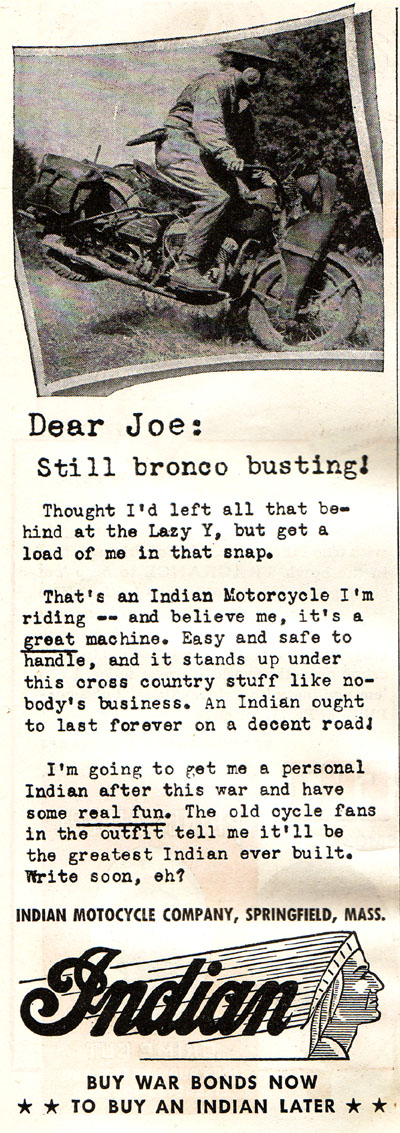 Dear Joe:
Still bronco busting!
Thought I'd left all that be-
hind at the Lazy Y, but get a
load of me in that snap.
That's an Indian Motorcycle I'm
riding -- and believe me, it's a
great machine. Easy and safe to
handle, and it stands up under
this cross country stuff like no-
body's business. An Indian ought
to last forever on a decent road!
I'm going to get me a personal
Indian after this war and have
some real fun. The old cycle fans
in the outfit tell me it'll be
the greatest Indian ever built.
Write soon, eh?
INDIAN MOTOCYCLE COMPANY, SPRINGFIELD, MASS.
Indian
BUY WAR BONDS NOW
★ ★ TO BUY AN INDIAN LATER ★ ★